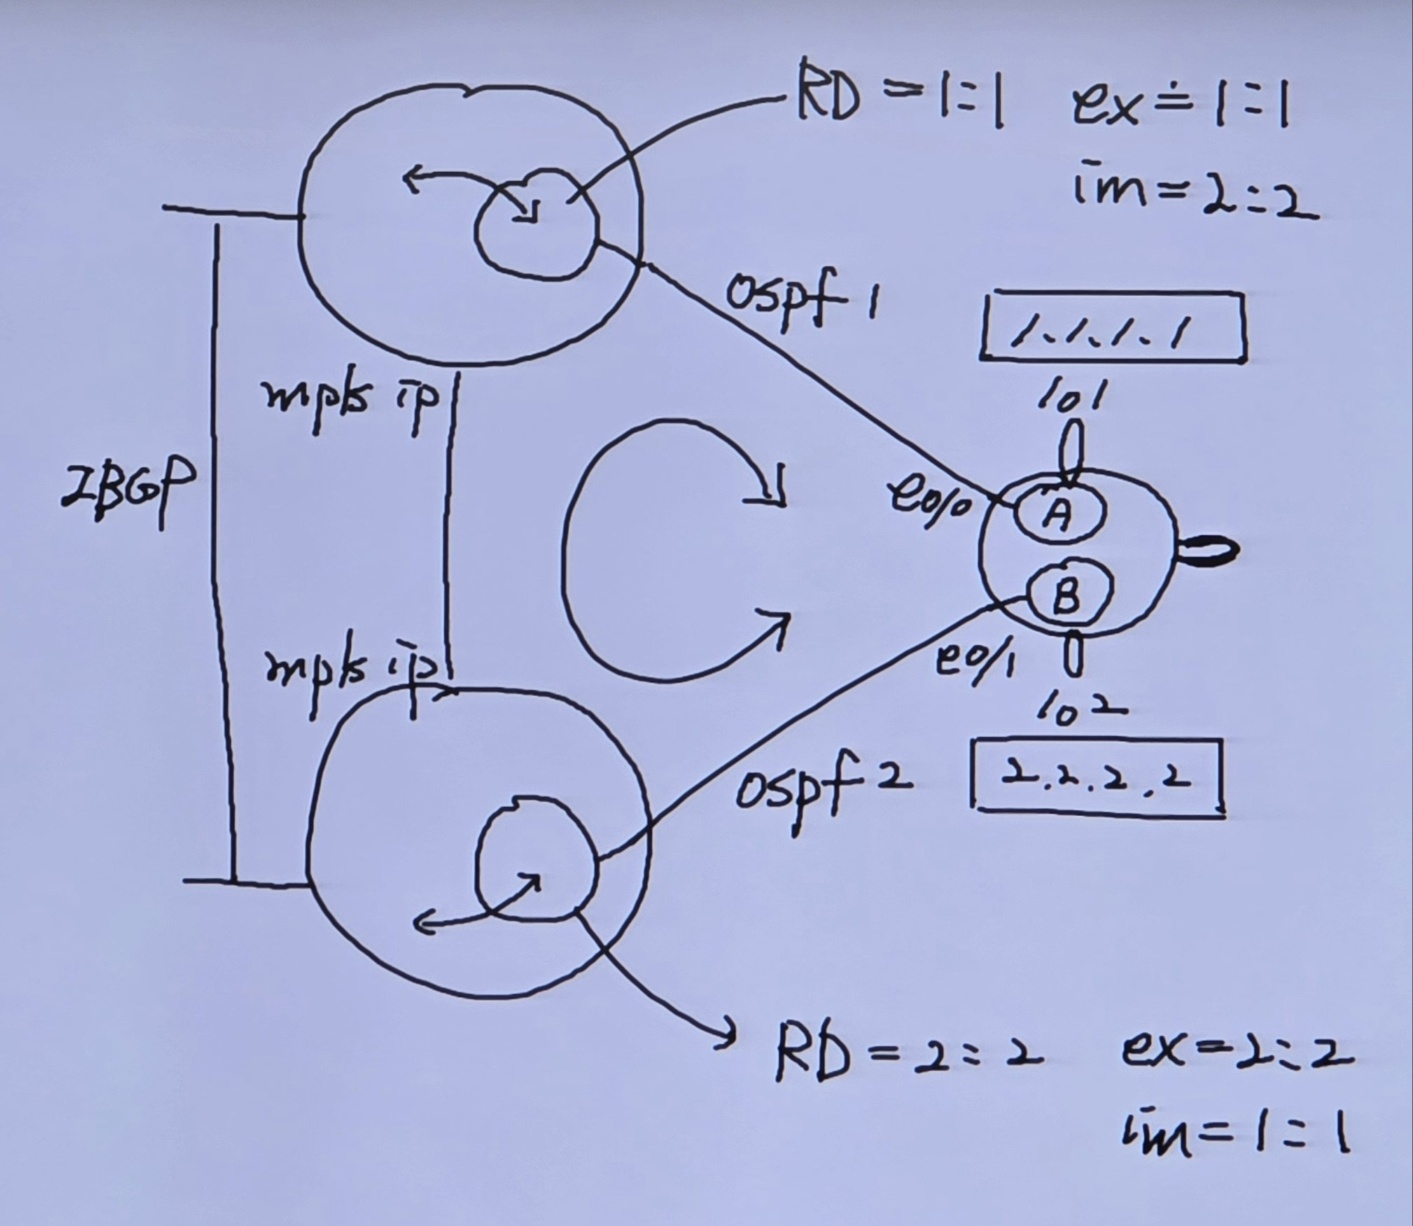 RD = 1:1 ex = 1:1
im = 2:2
ospf 1
1.1.1.1
lo1
mpls ip
IBGP
e0/0
A
B
mpls ip
e0/1
lo2
ospf 2
2.2.2.2
RD = 2:2 ex = 2:2
im = 1:1